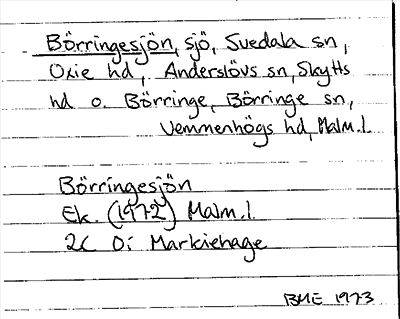 Börringesjön, sjö, Svedala sn,
Oxie hd, Anderslövs sn, Skytts
hd o. Börringe, Börringe sn,
Vemmenhögs hd, Malm.l.
Börringesjön
Ek. (1972) Malm.l.
2C 0i Markiehage
BME 1973